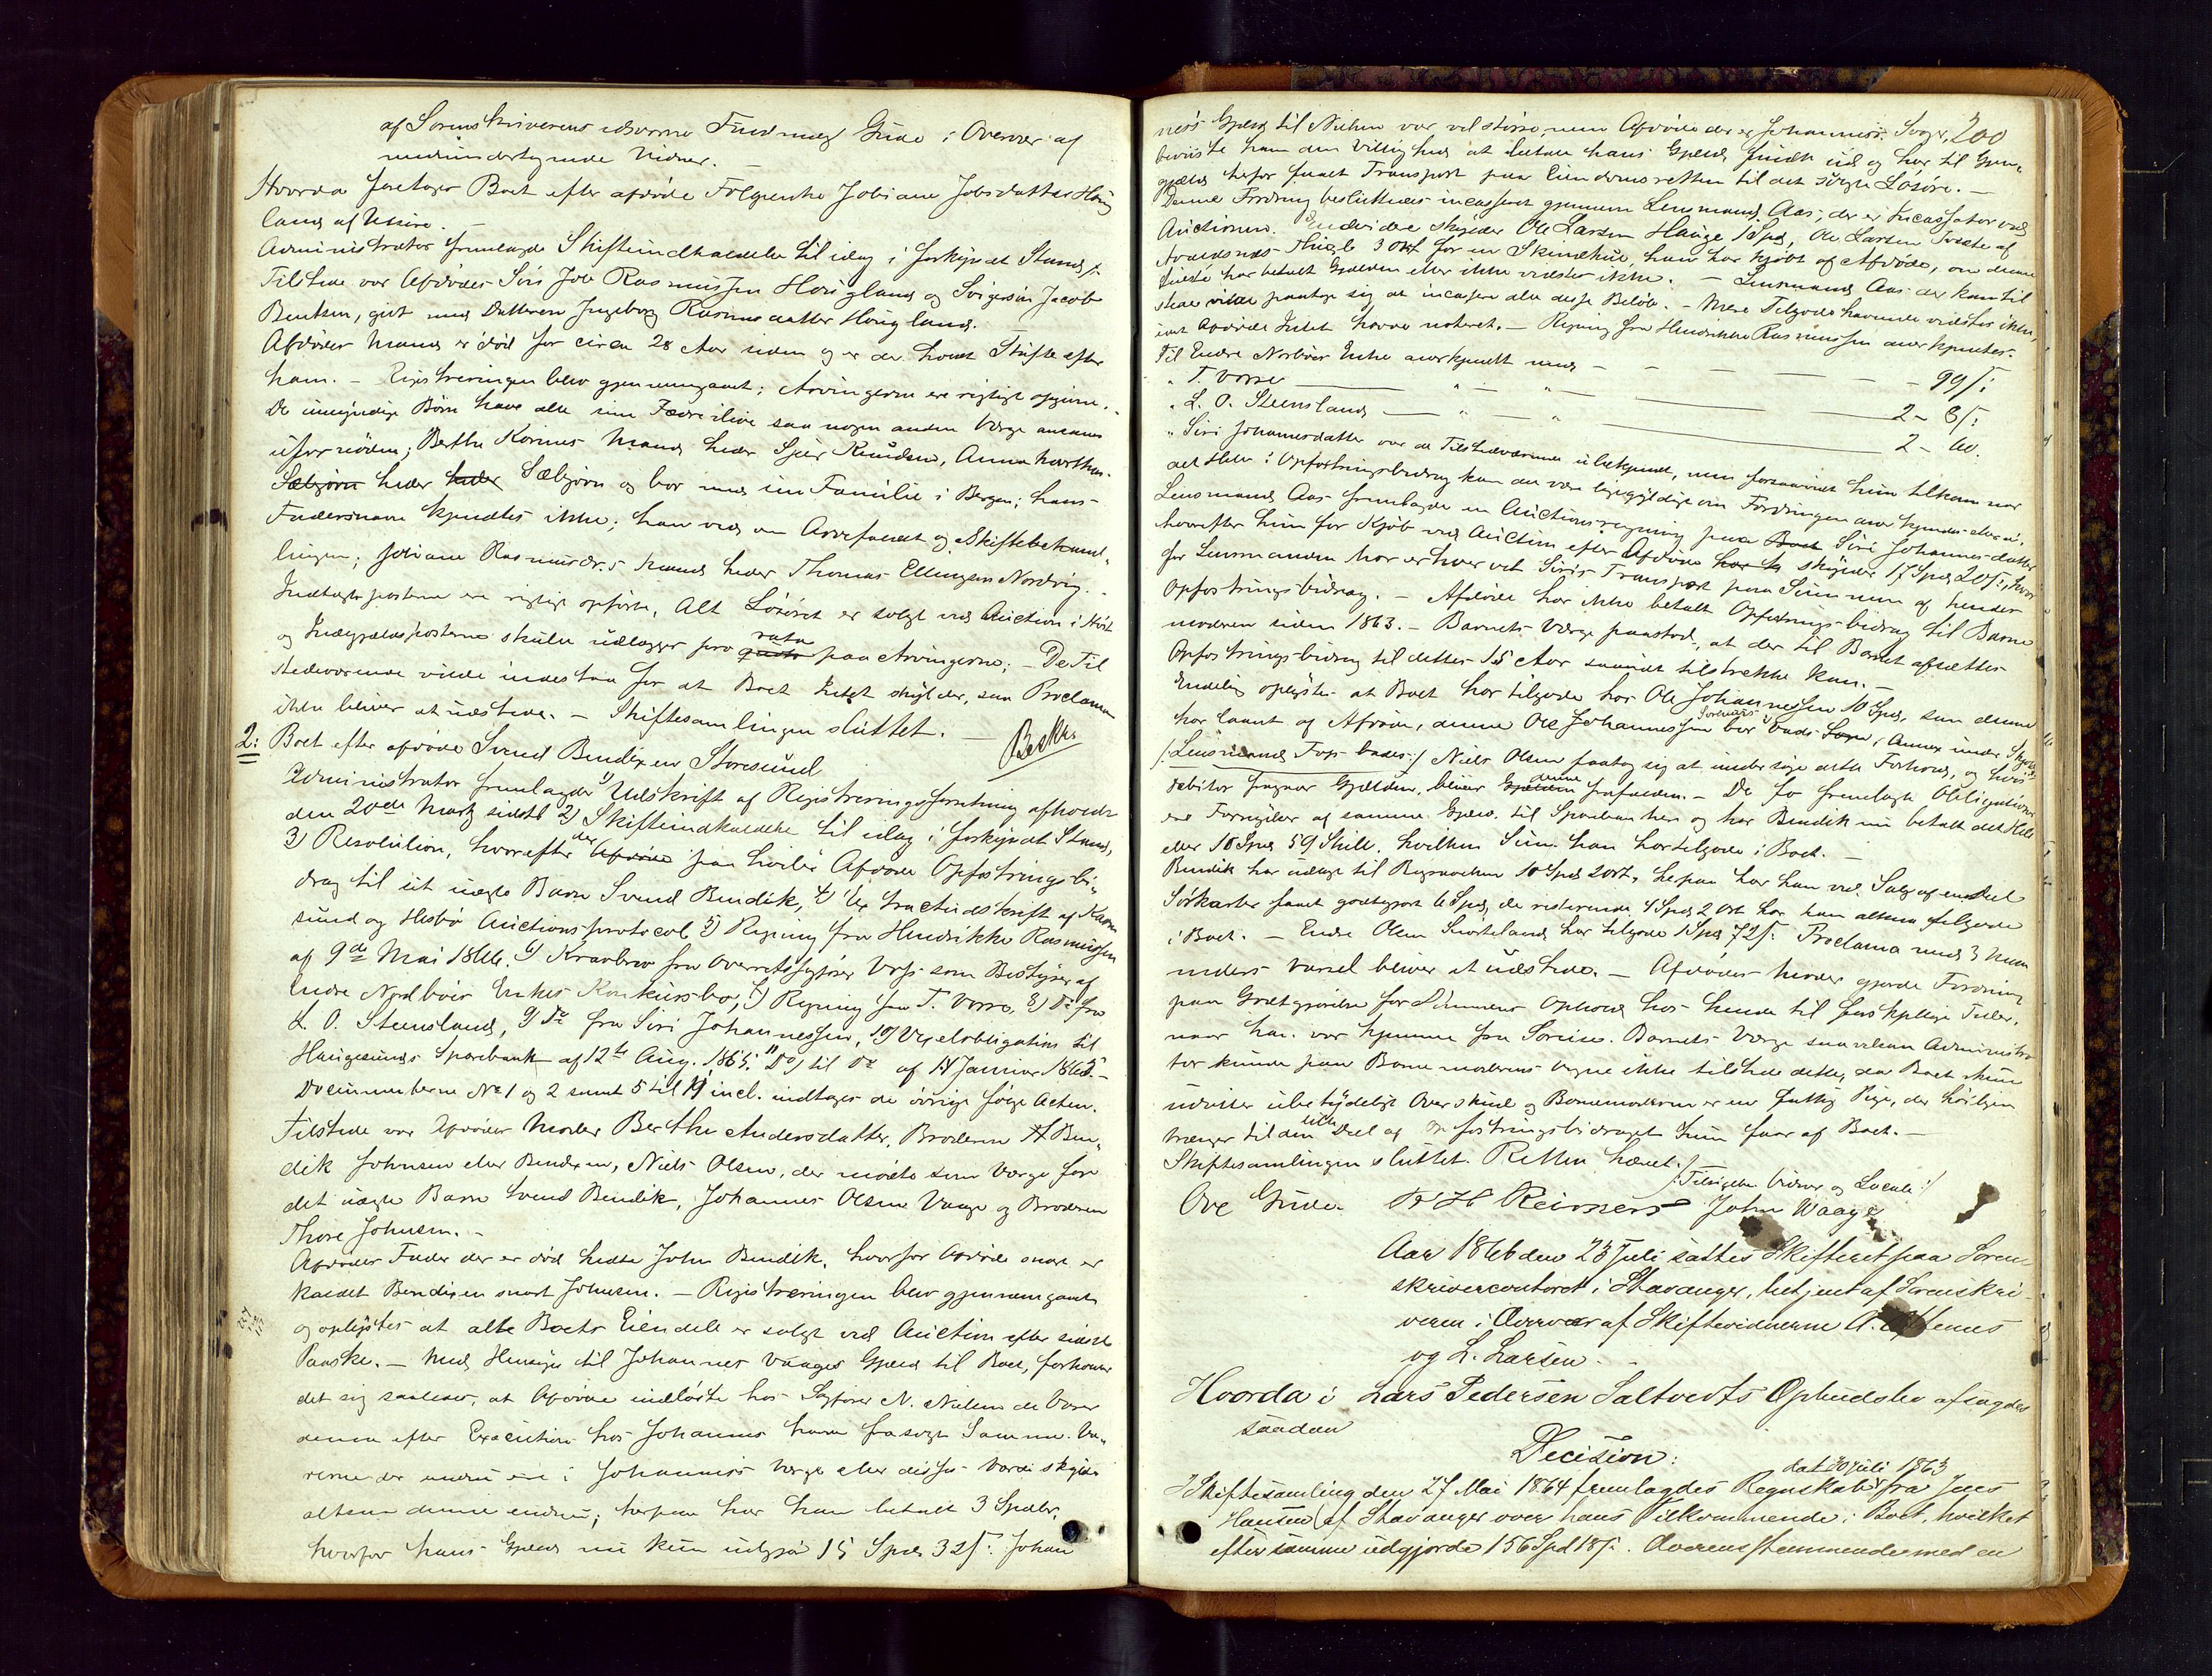 af Sorenskriverens edsvorne Fuldmægt Gude i Overvær af
medundertegnede Vidner. —
Hvorda foretoges Boet efter afdöde Følgeenke Jobiane Jobsdatter Houg
land af
Administrator fremlagde Skifteindkaldelse til idag i forkyndt Stand,
Tilstede var Afdödes Sön Job Rasmussen Hougland og Svigersön Jacob
Bentsen, givt med Datteren Ingeborg Rasmusdatter Hougland.
Afdödes Mand er död for circa 28 Aar siden og er der holdt Skifte efter
ham. — Registreringen blev gjennemgaaet; Arvingerne ere rigtigt opgivne. -
De umyndige Börn have alle sin Fader ilive saa nogen anden Værge ansaaes
ufornöden; Berthe Mand heder Sjur Knudsen, Anna Marthas
Sæbjörn heder heder Sæbjörn og bor med sin Familie i Bergen; hans
Fadersnavn kjendtes ikke; han ved om Arvefaldet og Skiftebehand-
lingen; Jobiane Rasmusdr.s Mand heder Thomas Ellingsen Nordvig. -
Indtægtsposterne ere rigtigt opförte, Alt Lösöret er solgt ved Auction i Höst
og Indtægtsposterne skulle udlægges pro rata quota paa Arvingerne; — De Til
stedeværende vilde indestaa for at Boet Intet skylder, saa Proclama
ikke bliver at udstede. — Skiftesamlingen sluttet. —
2: Boet efter afdöde Svend Bendixen Storesund
Administrator fremlagde 1) Udskrift af Registreringsforretning afholdt
den 20de Marts sidstl 2) Skifteindkaldelse til idag i forkyndt Stand,
3) Resolution, hvorefter der Afdöde paa hviler Afdöde Opfostringsbi-
drag til sit uægte Barn Svend Bendik, 4) Extractudskrift af Karm
sund og Hesbö Auctionsprotocol 5) Regning fra Hendrikke Rasmussen
af 9de Mai 1866. 6) Kravbrev fra Overretssagförer Voss som Bestyrer af
Endre Nordböes Enkes Konkursbo, 7) Regning fra T. Vorre, 8) Do fra
L. O. Steensland, 9) Do fra Siri Johannessen, 10) Vexelobligation til
Haugesunds Sparebank af 12te Aug. 1865. 11) Do til Do af 14 Januar 1865. -
Documenterne No 1 og 2 samt 5 til 11 incl. indtages de övrige fölge Acten.
Tilstede var Afdödes Moder Berthe Andersdatter, Broderen Ben-
dik Johnsen eller Bendixen, Niels Olsen, der mödte som Værge for
det uægte Barn Svend Bendik, Johannes Olsen Vaage og Broderen
Thore Johnsen. -
Afdödes Fader der er död hedte John Bendik, hvorfor Afdöde snart er
kaldet Bendixen snart Johnsen. — Registreringen blev gjennemgaaet
og oplystes at alle Boets Eiendele er solgt ved Auction efter sidste
Paaske. — Med Hensyn til Johannes Vaages Gjæld til Boet, forholder
det sig saaledes, at Afdöde indlöste hos Sagförer N. Nielsen de Varer
denne efter Execution hos Johannes havde frasolgt Samme. Va-
rerne der endnu ere i Johannes's Værge eller disses Værdi skylder
altsaa denne endnu; herpaa har han betalt 3 Spdlr,
hvorfor hans Gjæld nu kun udgjör 15 Spd 32ſ: Johan
200
nes's Gjæld til Nielsen var vel större, men Afdöde der er Johannes's Svoger,
beviiste ham den Villighed at betale hans Gjæld fuldt ud og har til Gjen-
gjæld herfor faaet Transport paa Eiendomsretten til det solgte Lösöre. —
Denne Fordring besluttedes incasseret gjennem Lensmand Aas, der er Incassator ved
Auctionen. Endvidere skylder Ole Larsen Hauge 1 Spd, Ole Larsen Tveite af
Avaldsnæs Thinglag 3 Ort for en Skindhue, han har kjöbt af Afdöde, om denne
sidste har betalt Gjælden eller ikke vidstes ikke. — Lensmand Aas der kom til
stede vilde paatage sig at incassere alle disse Belöb. — Mere Tilgodehavende vidstes ikke,
Afdöde Intet havde noteret. — Regning fra Hendrikke Rasmussen anerkjendtes.
Til Endre Norböes Enke anerkjendt med — — — — — 99ſ:
" T. Vorre — " — " — 2 - 8ſ:
" L. O. Steensland — " — " — 2 - 60.
" Siri Johannesdatter var de Tilstedeværende ubekjendt, men forsaavidt hun tilkommer
det Hele i Opfostringsbidrag kan det være ligegyldigt om Fordringen anerkjendes eller ei.
Lensmand Aas fremlagde en Auctionsregning paa Boet Siri Johannesdatter
hvorefter hun for Kjöb ved Auction efter Afdöde har til skylder 17 Spd 20ſ:, hvor
for Lensmanden har erhvervet Siris Transport paa Summen af hendes
Opfostringsbidrag. — Afdöde har ikke betalt Opfostringsbidrag til Barne
moderen siden 1863. — Barnets Værge paastod, at der til Barnet afsættes
Opfostringsbidrag til dettes 15 Aar saavidt tilstrække kan. —
Endelig oplystes at Boet har tilgode hos Ole Johannessen 10 Spd, som denne
har laant af Afdöde, denne Ole Johannessen bor Sogn, Annex under
/: Lensmand bades :/ Niels Olsen paatog sig at undersöge dette Forhold, og hvis
Debitor fragaar Gjælden, bliver Gjælden denne frafalden. — De to fremlagte Obligationer
ere Fornyelser af samme Gjæld til Sparebanken og har Bendik nu betalt det Hele
eller 18 Spd 59 Skill. hvilken Sum han har tilgode i Boet. —
Bendik har udlagt til Begravelsen 10 Spd 2 Ort, herpaa har han ved Salg af endeel
Sörkarter faaet godtgjort 6 Spd, de resterende 4 Spd 2 Ort har han altsaa tilgode
i Boet. — Endre Olsen har tilgode 1 Spd 72ſ. Proclama med 3 Maa
neders Varsel bliver at udstede. — Afdödes Moder gjorde Fordring
paa Godtgjörelse for Sönnens Ophold hos hende til forskjellige Tider,
naar han var hjemme fra Söreise. Barnets Værge saavelsom Administra
tor kunde paa Barnemoderens Vegne ikke tilstede dette, da Boet skulde
udviser ubetydeligt Overskud og Barnemoderen er en fattig Pige, der höiligen
trænger til den lille Deel af Opfostringsbidraget hun faar af Boet. —
Skiftesamlingen sluttet. Retten hævet. /: Tilsigelse Vidner og Locale :/
Ove Gude. R H Reimers John Waage
Aar 1866 den 23 Juli sattes Skifteret paa Soren
skrivercontoret i Stavanger, betjent af Sorenskri-
veren i Overvær af Skiftevidnerne
og L. Larsen. -
Hvorda i Lars Pedersen Saltvedts Opbudsbo afsagdes
saadan
Decision:
dat 30 juli 1863
I Skiftesamling den 27 Mai 1864 fremlagdes Regnskab fra Jens
Hansen af Stavanger over hans Tilkommende i Boet, hvilket
efter samme udgjorde 156 Spd 18ſ. Overensstemmende med en